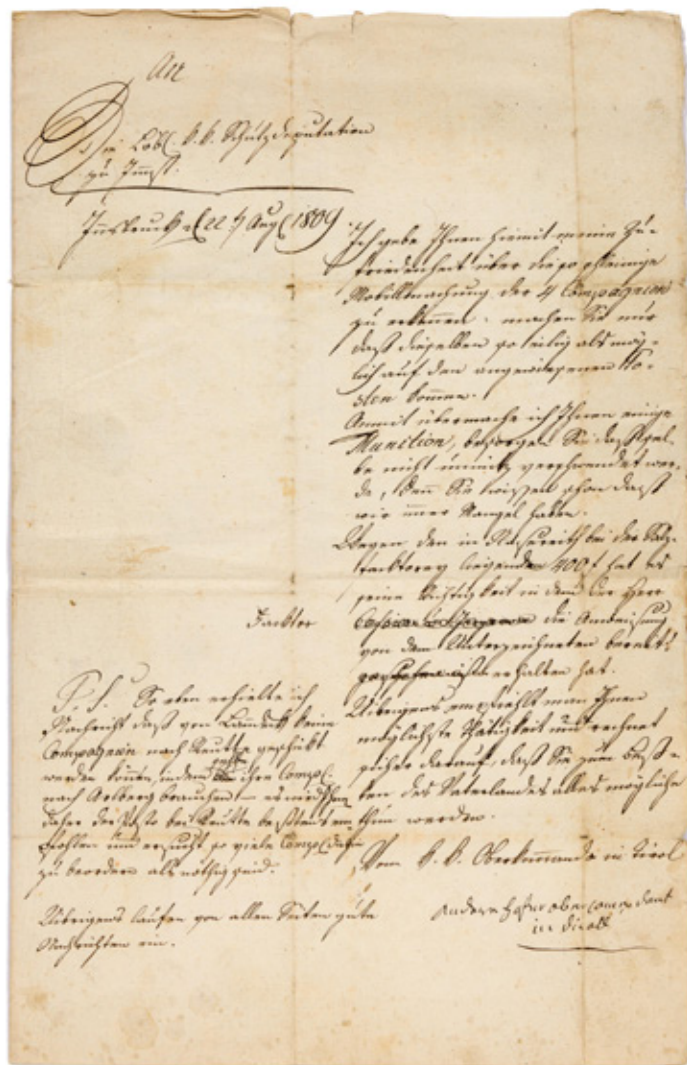 An
Die Löbl. k. k. Schutzdeputation
zu Imst.
Innsbruck d 22 t Aug 1809
Ich gebe Ihnen hiemit meine Zu-
friedenheit über die so schleinige
Mobillmachung der 4 Compagnien
zu erkennen. machen Sie nur
daß dieselben so eilig als mög-
lich auf den angewiesenen Po-
sten kommen.
Anmit übermache ich Ihnen einige
Munition, besorgen Sie daß sel-
be nicht unnütz verschwendet wer-
de, denn Sie wissen schon daß
wir immer Mangel haben.
Wegen den in Nassereith bei der Salz-
facktorey liegenden 400 f hat es
seine Richtigkeit in dem der Herr
Facktor
die Anweisung
von dem Unterzeichneten bereits
erhalten hat.
Uibrigens empfiehlt man Ihnen
möglichste Thätigkeit und rechnet
sicher darauf, daß Sie zum Beß-
ten des Vaterlandes alles mögliche
thun werden.
Vom k. k. Oberkommando in Tirol
Andere Hofer ober comendant
in diroll
P. S. So eben erhielte ich
Nachricht daß von Landeck keine
Compagnien nach Reutte geschickt
werden können, indem sie ihre Comp.
nach Arlberg brauchen – es wird Ihnen
daher der Posto bei Reutte beßtens em
pfohlen und ersucht so viele Comp. dahin
zu beordern als nöthig seid.
Uibrigens laufen von allen Seiten gute
Nachrichten ein.